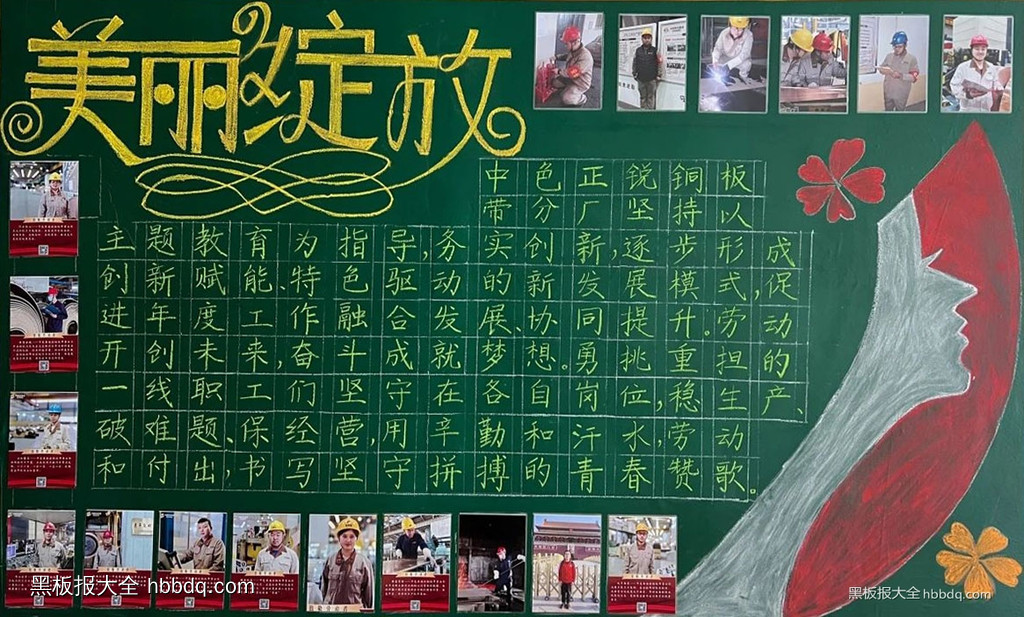 美丽绽放
中色正锐铜板
带分厂坚持以
主题教育为指导,务实创新,逐步形成
创新赋能、特色驱动的创新发展模式,促
进年度工作融合发展、协同提升。劳动
开创未来,奋斗成就梦想。勇挑重担的
一线职工们坚守在各自岗位,稳生产、
破难题、保经营,用辛勤和汗水,劳动
和付出,书写坚守拼搏的青春赞歌。
黑板报大全 hbbdq.com
黑板报大全 hbbdq.com